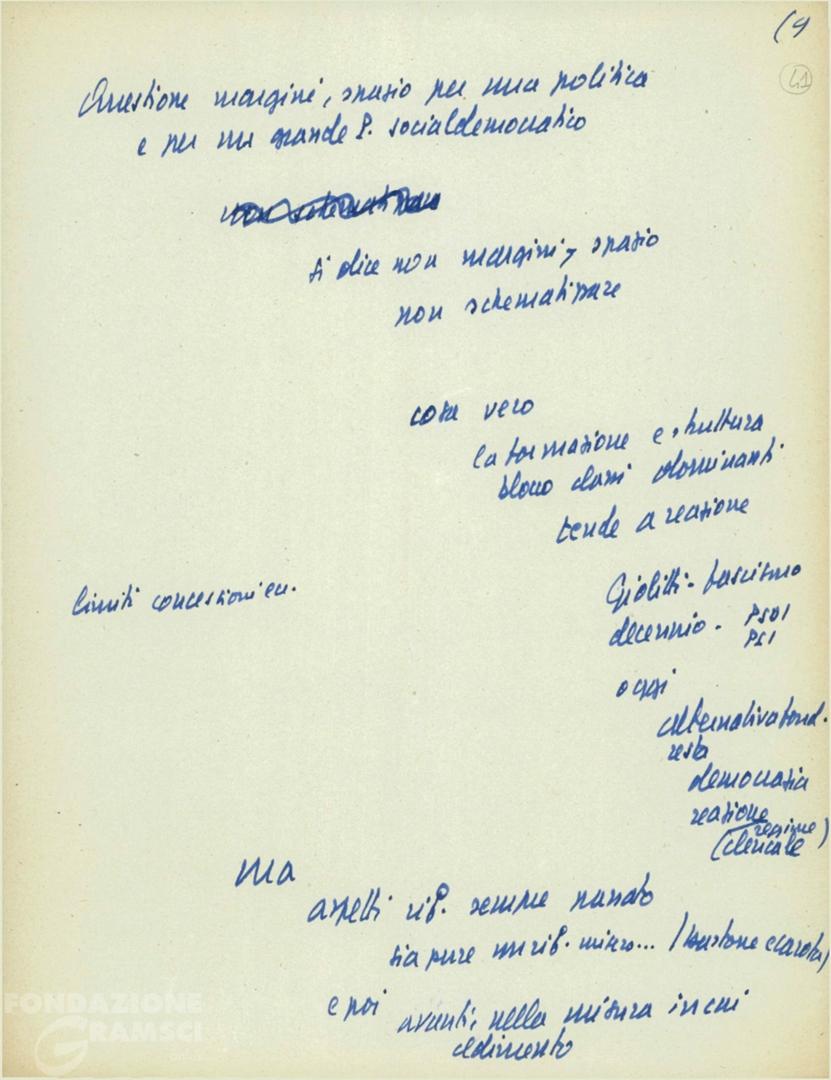 (9
41
Questione margini, spazio per una politica
e per un grande P. socialdemocratico
si dice non margini, spazio
non schematizzare
cosa vero
la formazione e struttura
blocco classi dominanti
tende a reazione
limiti concessioni ec.
Giolitti - fascismo
decennio - PSDI
PSI
oggi
alternativa fond.
resta
democrazia
reazione
regime
(clericale)
Ma
aspetti rif. sempre passato
sia pure un rif. micro... (bastone e carota)
e poi
avanti, nella misura in cui
cedimento
FONDAZIONE
GRAMSCI